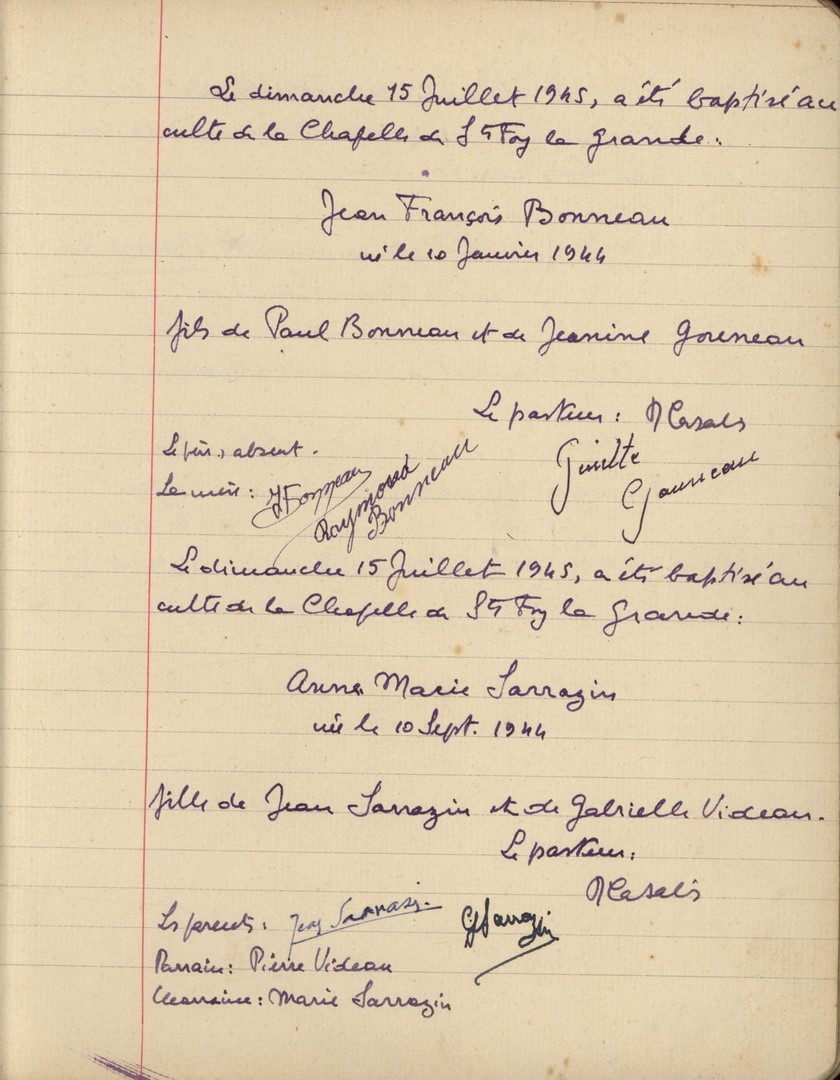 Le dimanche 15 Juillet 1945, a été baptisé au
culte de la Chapelle de Ste Foy la Grande :
Jean François Bonneau
né le 10 Janvier 1944
fils de Paul Bonneau et de Jeanine Gouneau
Le pasteur : Casalis
Le père, absent.
La mère : J Bonneau
Raymond
Bonneau
Ginette
Gouneau
Le dimanche 15 Juillet 1945, a été baptisé au
culte de la Chapelle de Ste Foy la Grande :
Anne Marie Sarrazin
née le 10 Sept. 1944
fille de Jean Sarrazin et de Gabrielle Videau.
Le pasteur :
Casalis
Les parents : Jean Sarrazin G Sarrazin
Parrain : Pierre Videau
Marraine : Marie Sarrazin